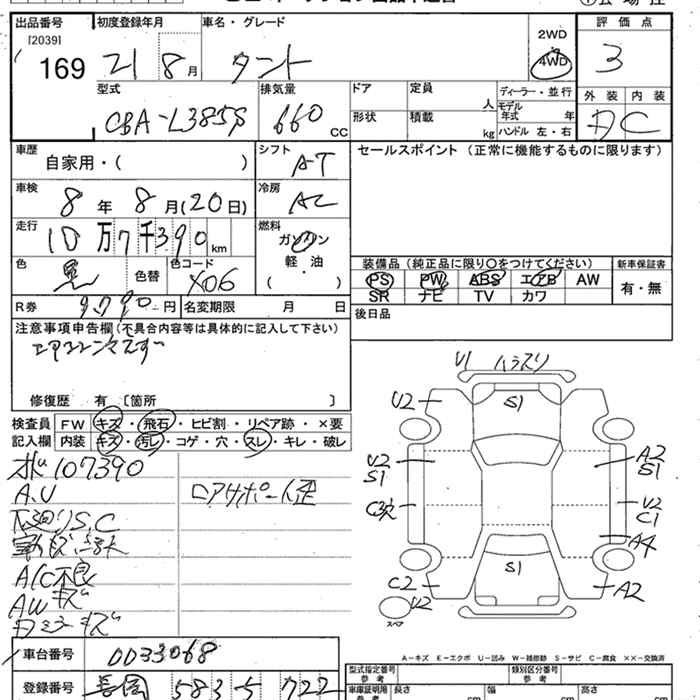 出品番号 初度登録年月 車名・グレード 評価点
[2039] 2WD
169 21 8月 タント 4WD 3
型式 排気量 ドア 定員 ディーラー・並行 外装 内装
人 モデル年式 年
CBA-L385S 660 cc 形状 積載 kg ハンドル 左・右 A C
車歴 シフト セールスポイント (正常に機能するものに限ります)
自家用・( ) AT
車検 冷房
8年8月(20日) AC
走行 燃料
10万7千390km ガソリン
色 色替 色コード 軽・油 装備品 (純正品に限り○をつけてください) 新車保証書
黒 X06 ( ) PS PW ABS エアB AW 有・無
R券 9,790円 名変期限 月 日 SR ナビ TV カワ
注意事項申告欄(不具合内容等は具体的に記入して下さい) 後日品
修復歴 有 〔箇所 〕
検査員 FW キズ・飛石・ヒビ割・リペア跡・×要
記入欄 内装 キズ・汚レ・コゲ・穴・スレ・キレ・破レ
107390
A.U ロアサポート歪
下廻りS.C
A/C不良
AWキズ
U1
U2 S1
U2 A2
S1 S1
U2
C1
A4
S1
C2 A2
U2
スペア
A-キズ E-エクボ U-凹み W-補修跡 S-サビ C-腐食 ××-交換済
車台番号 0033068 型式指定番号 類別区分番号
参考 参考
登録番号 長岡 583 5 722 車庫証明用 長さ 幅 高さ
参考 cm cm cm